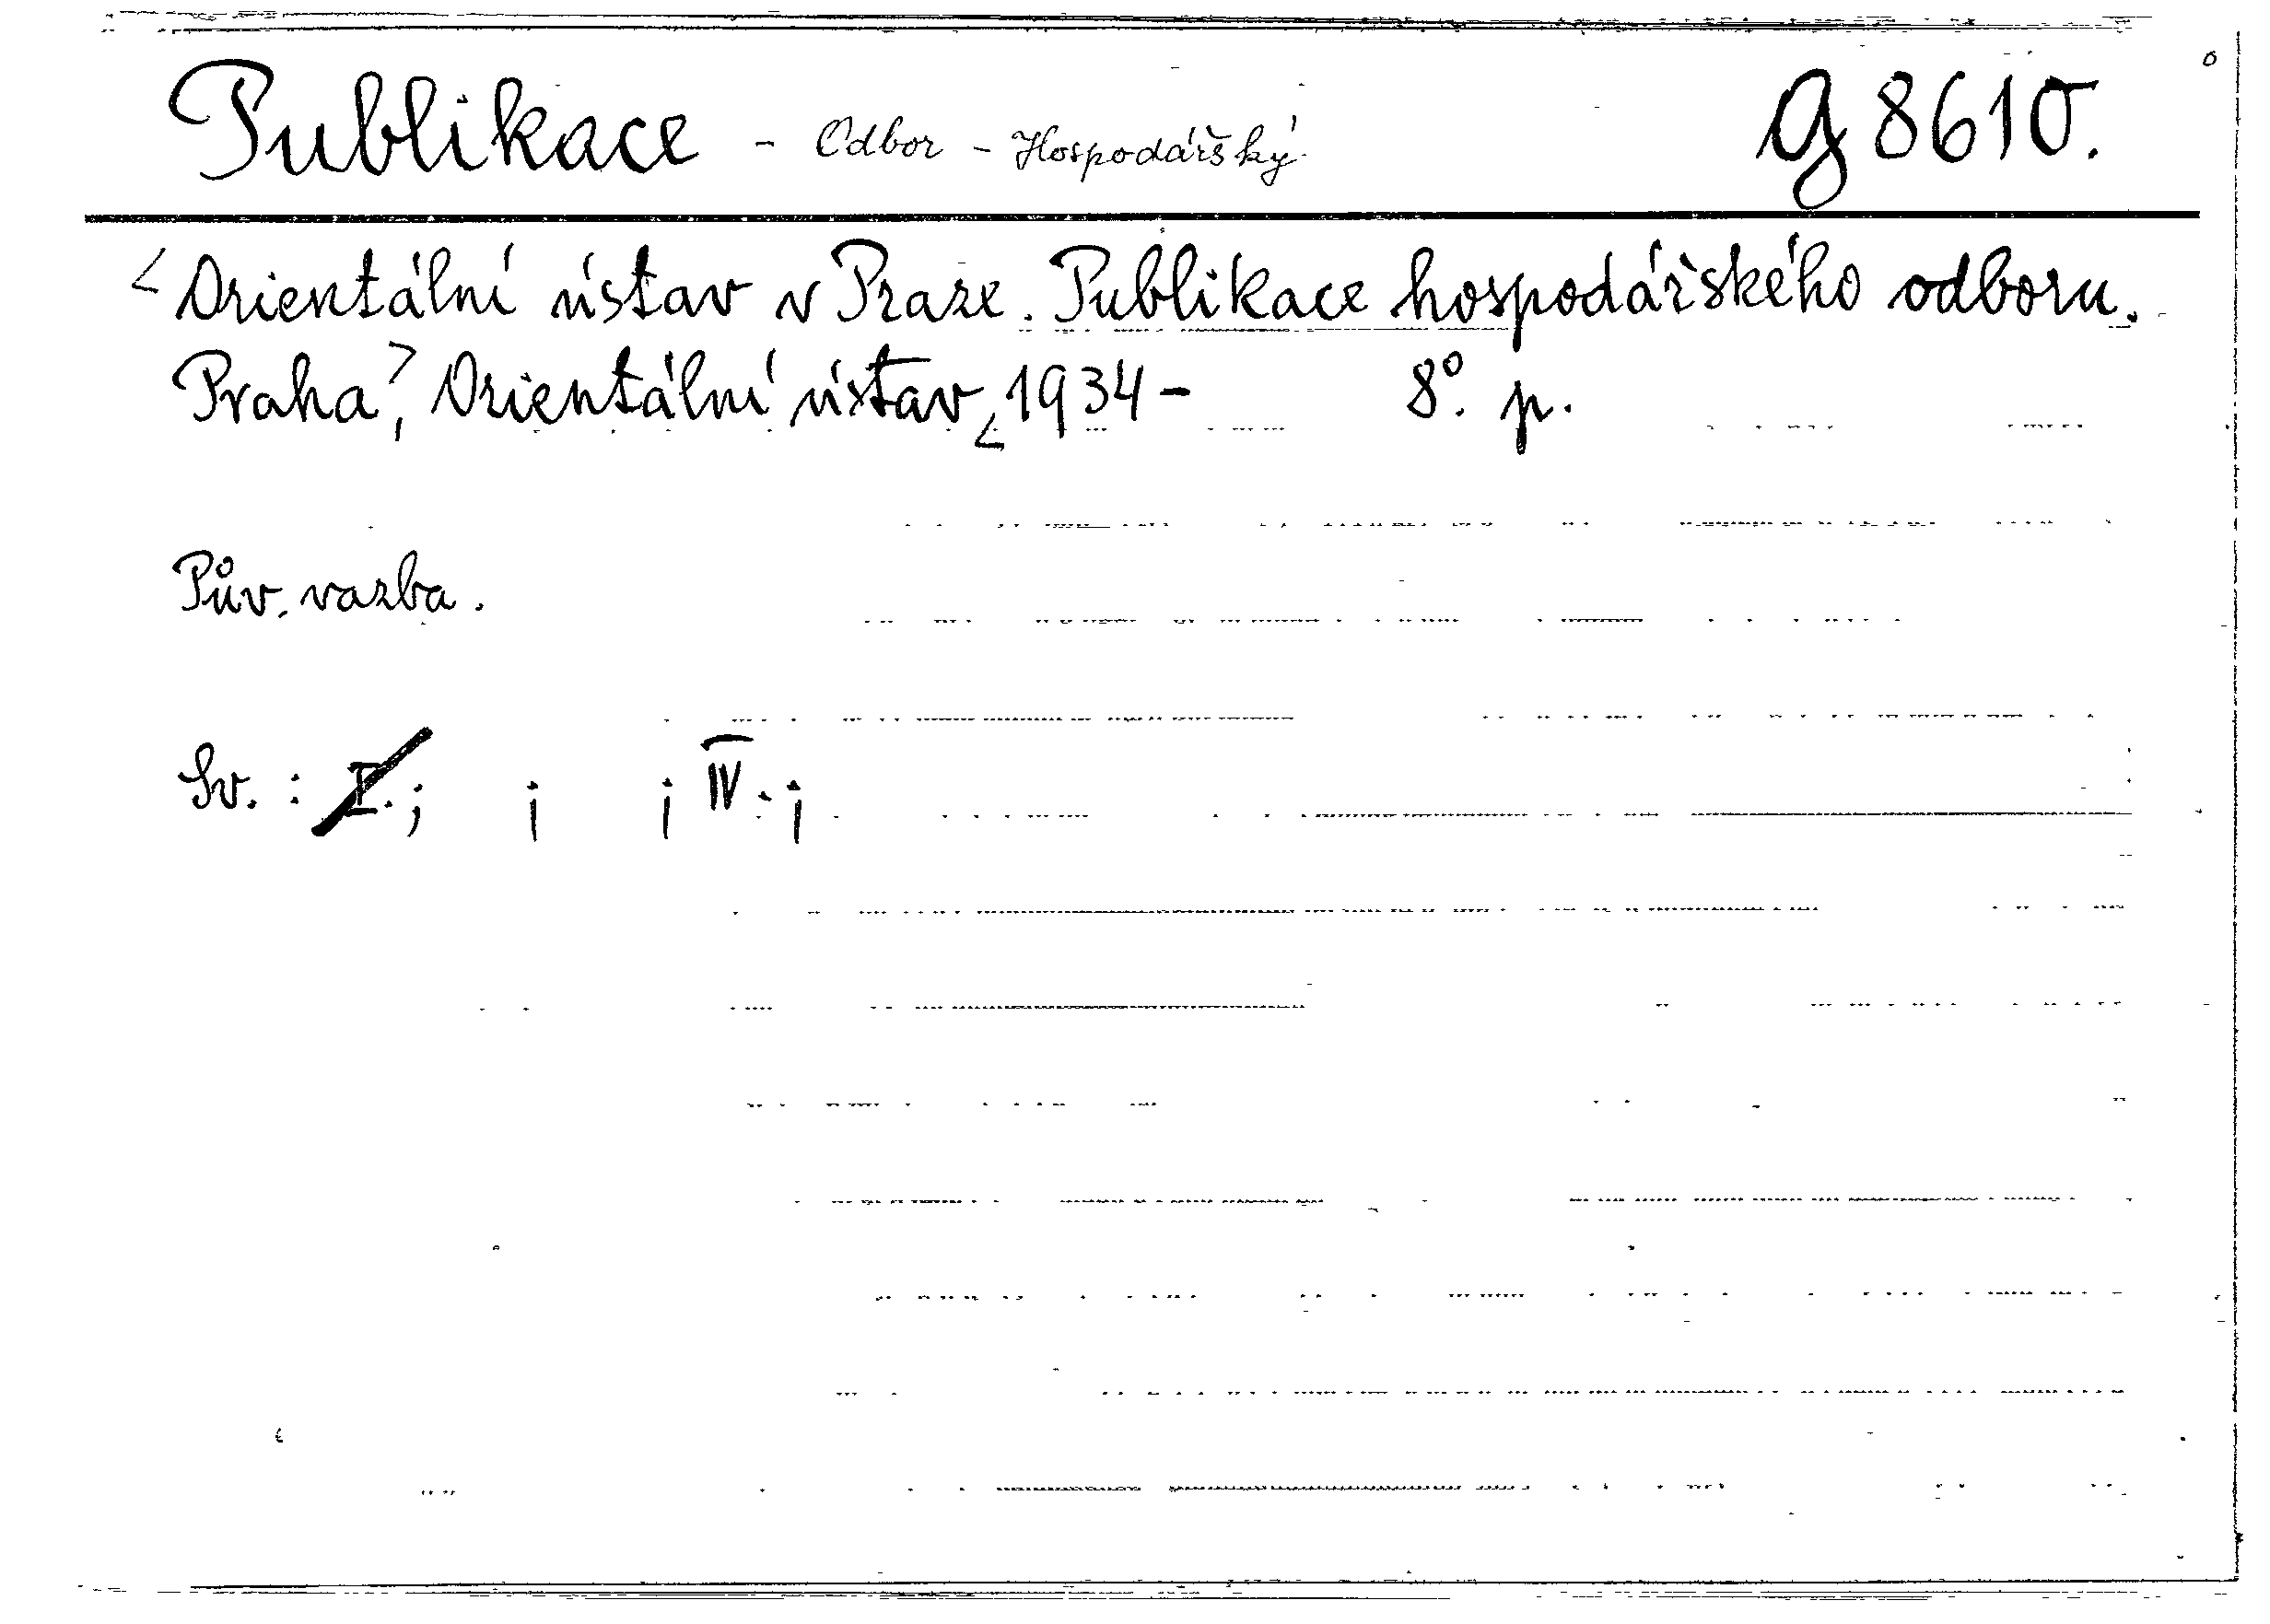 Publikace - Odbor - Hospodářský g 8610.
<Orientální ústav v Praze. Publikace hospodářského odboru.
Praha>, Orientální ústav, <1934- 8°. p.
Pův. vazba.
Sv. : I.; ; ; IV. ;